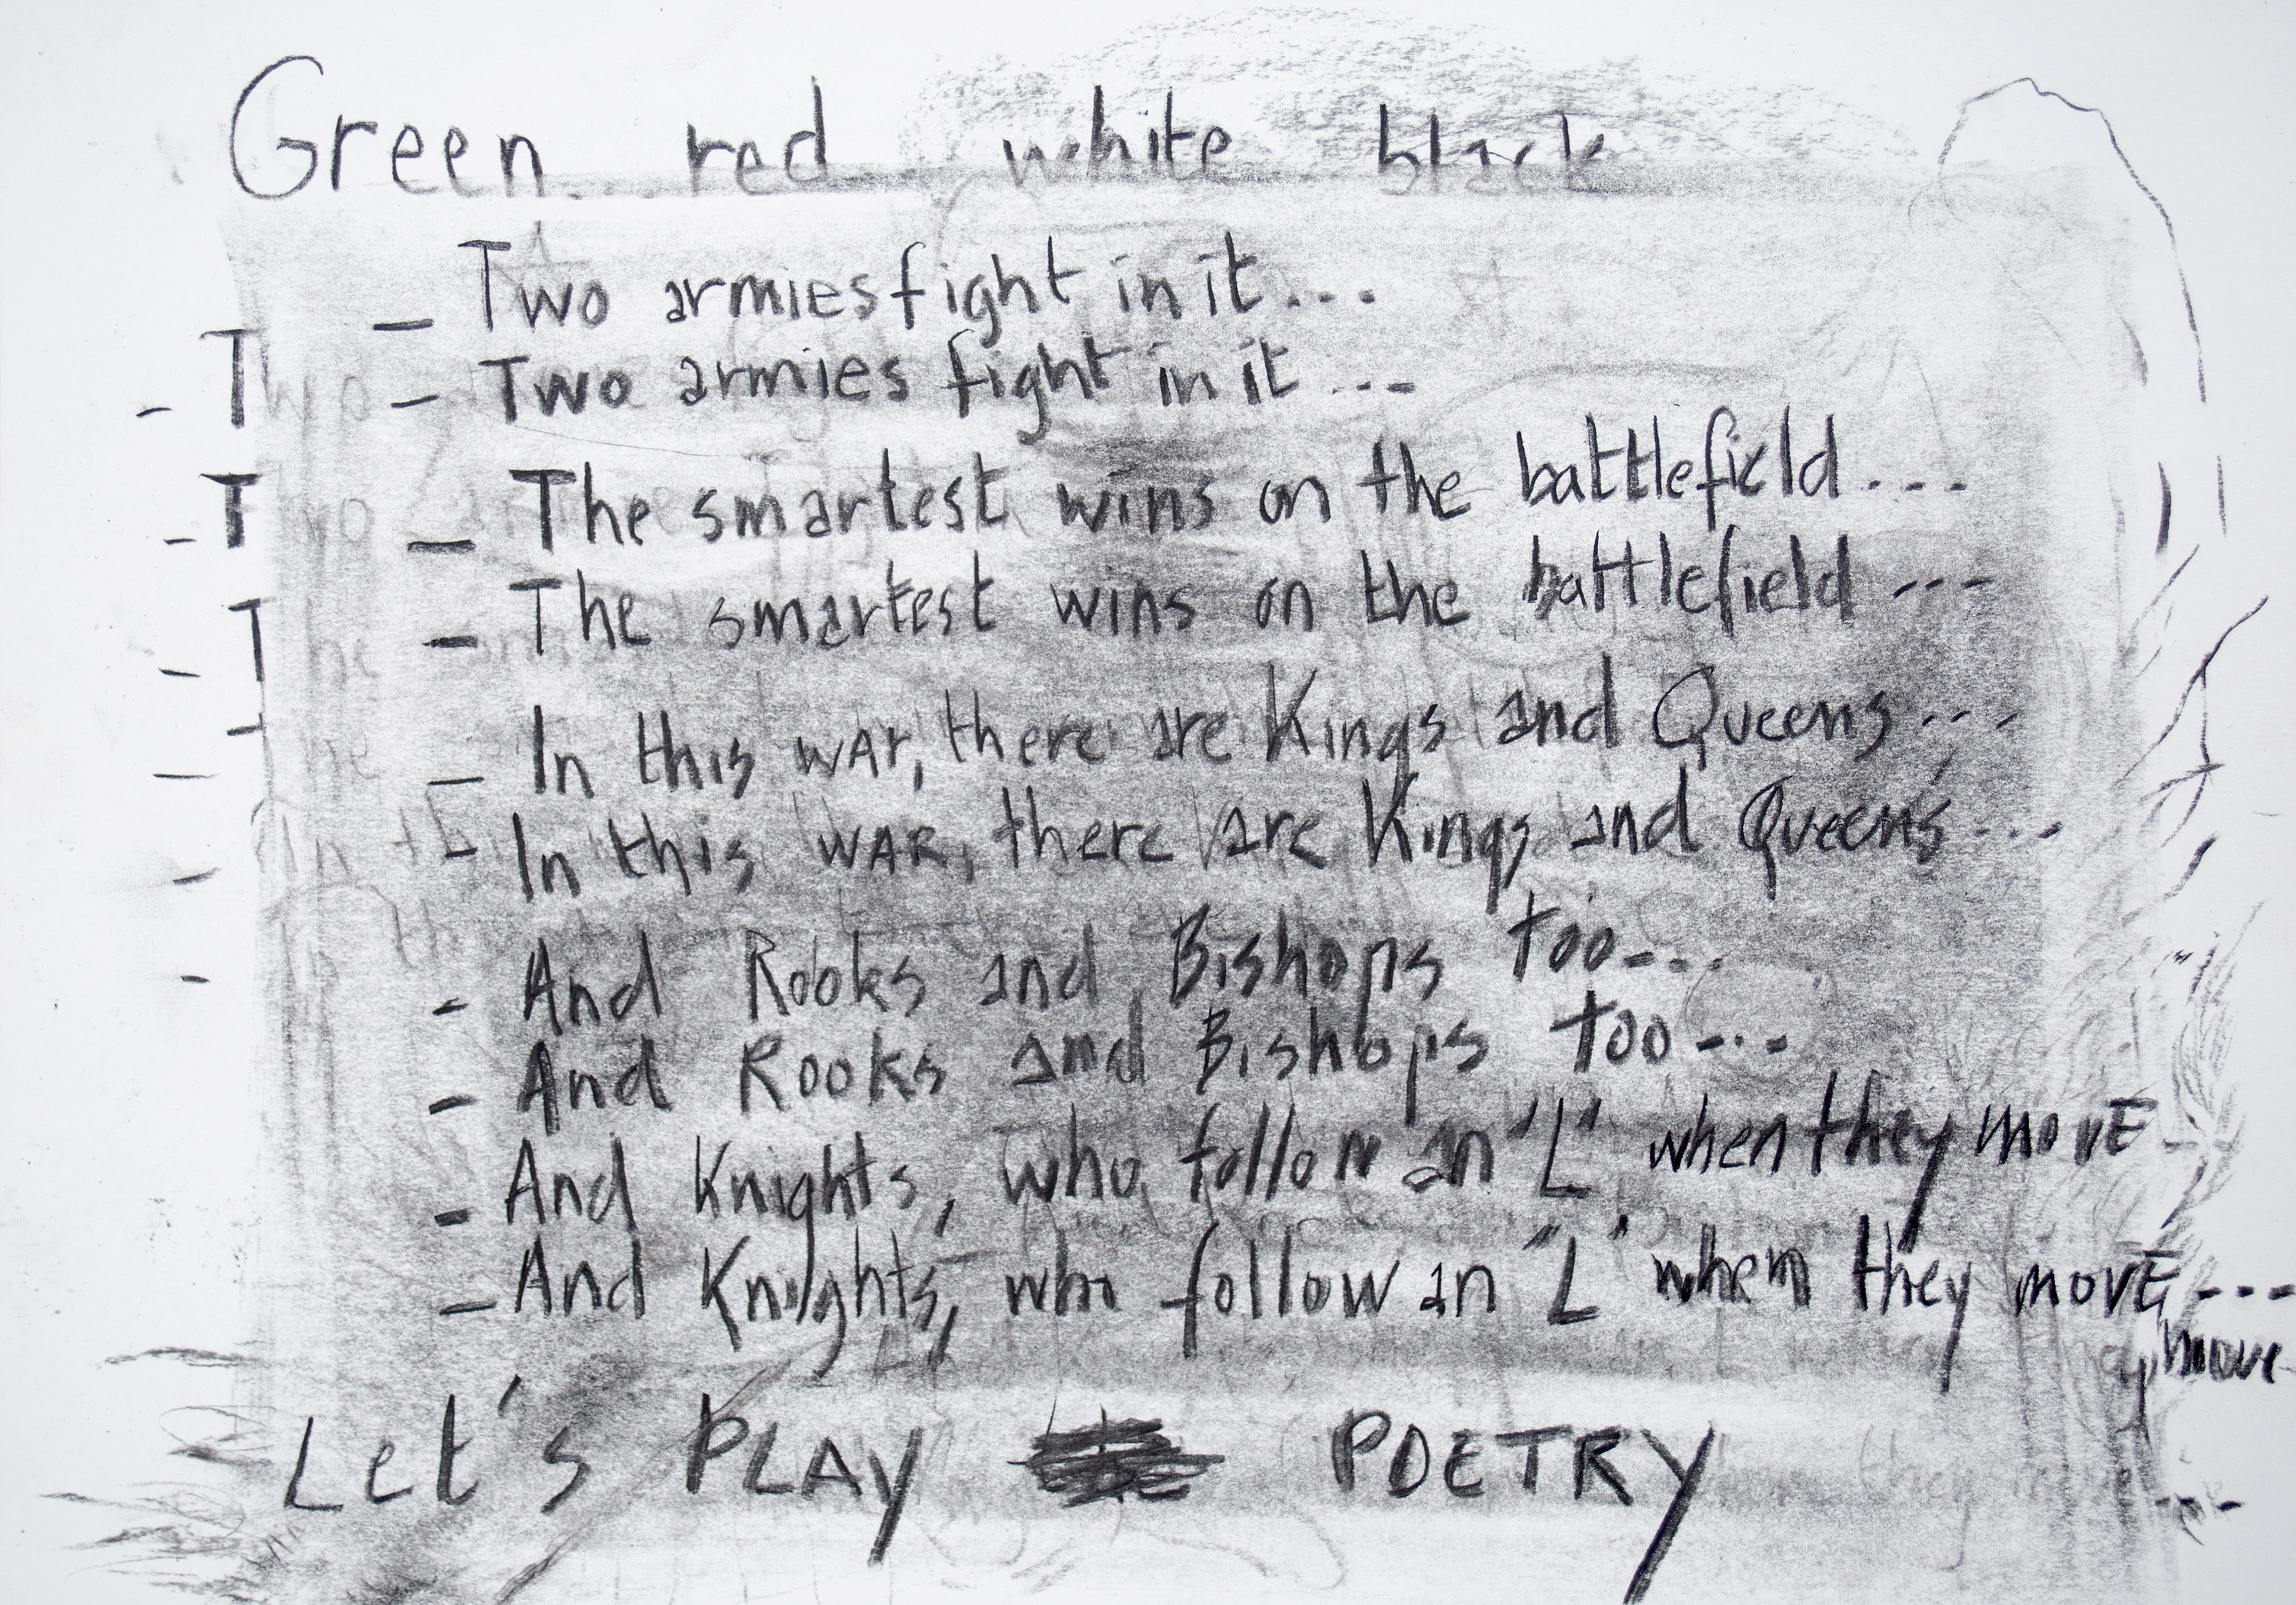 Green red white black
_ Two armies fight in it...
- Two armies fight in it...
_ The smartest wins on the battlefield...
- The smartest wins on the battlefield...
_ In this WAr, there are Kings and Queens...
- In this WAR, there are Kings and Queens...
- And Rooks and Bishops too...
- And Rooks and Bishops too...
- And Knights, who follow an "L" when they movE
- And Knights, who follow an "L" when they movE...
move
Let's PLAy POETRy